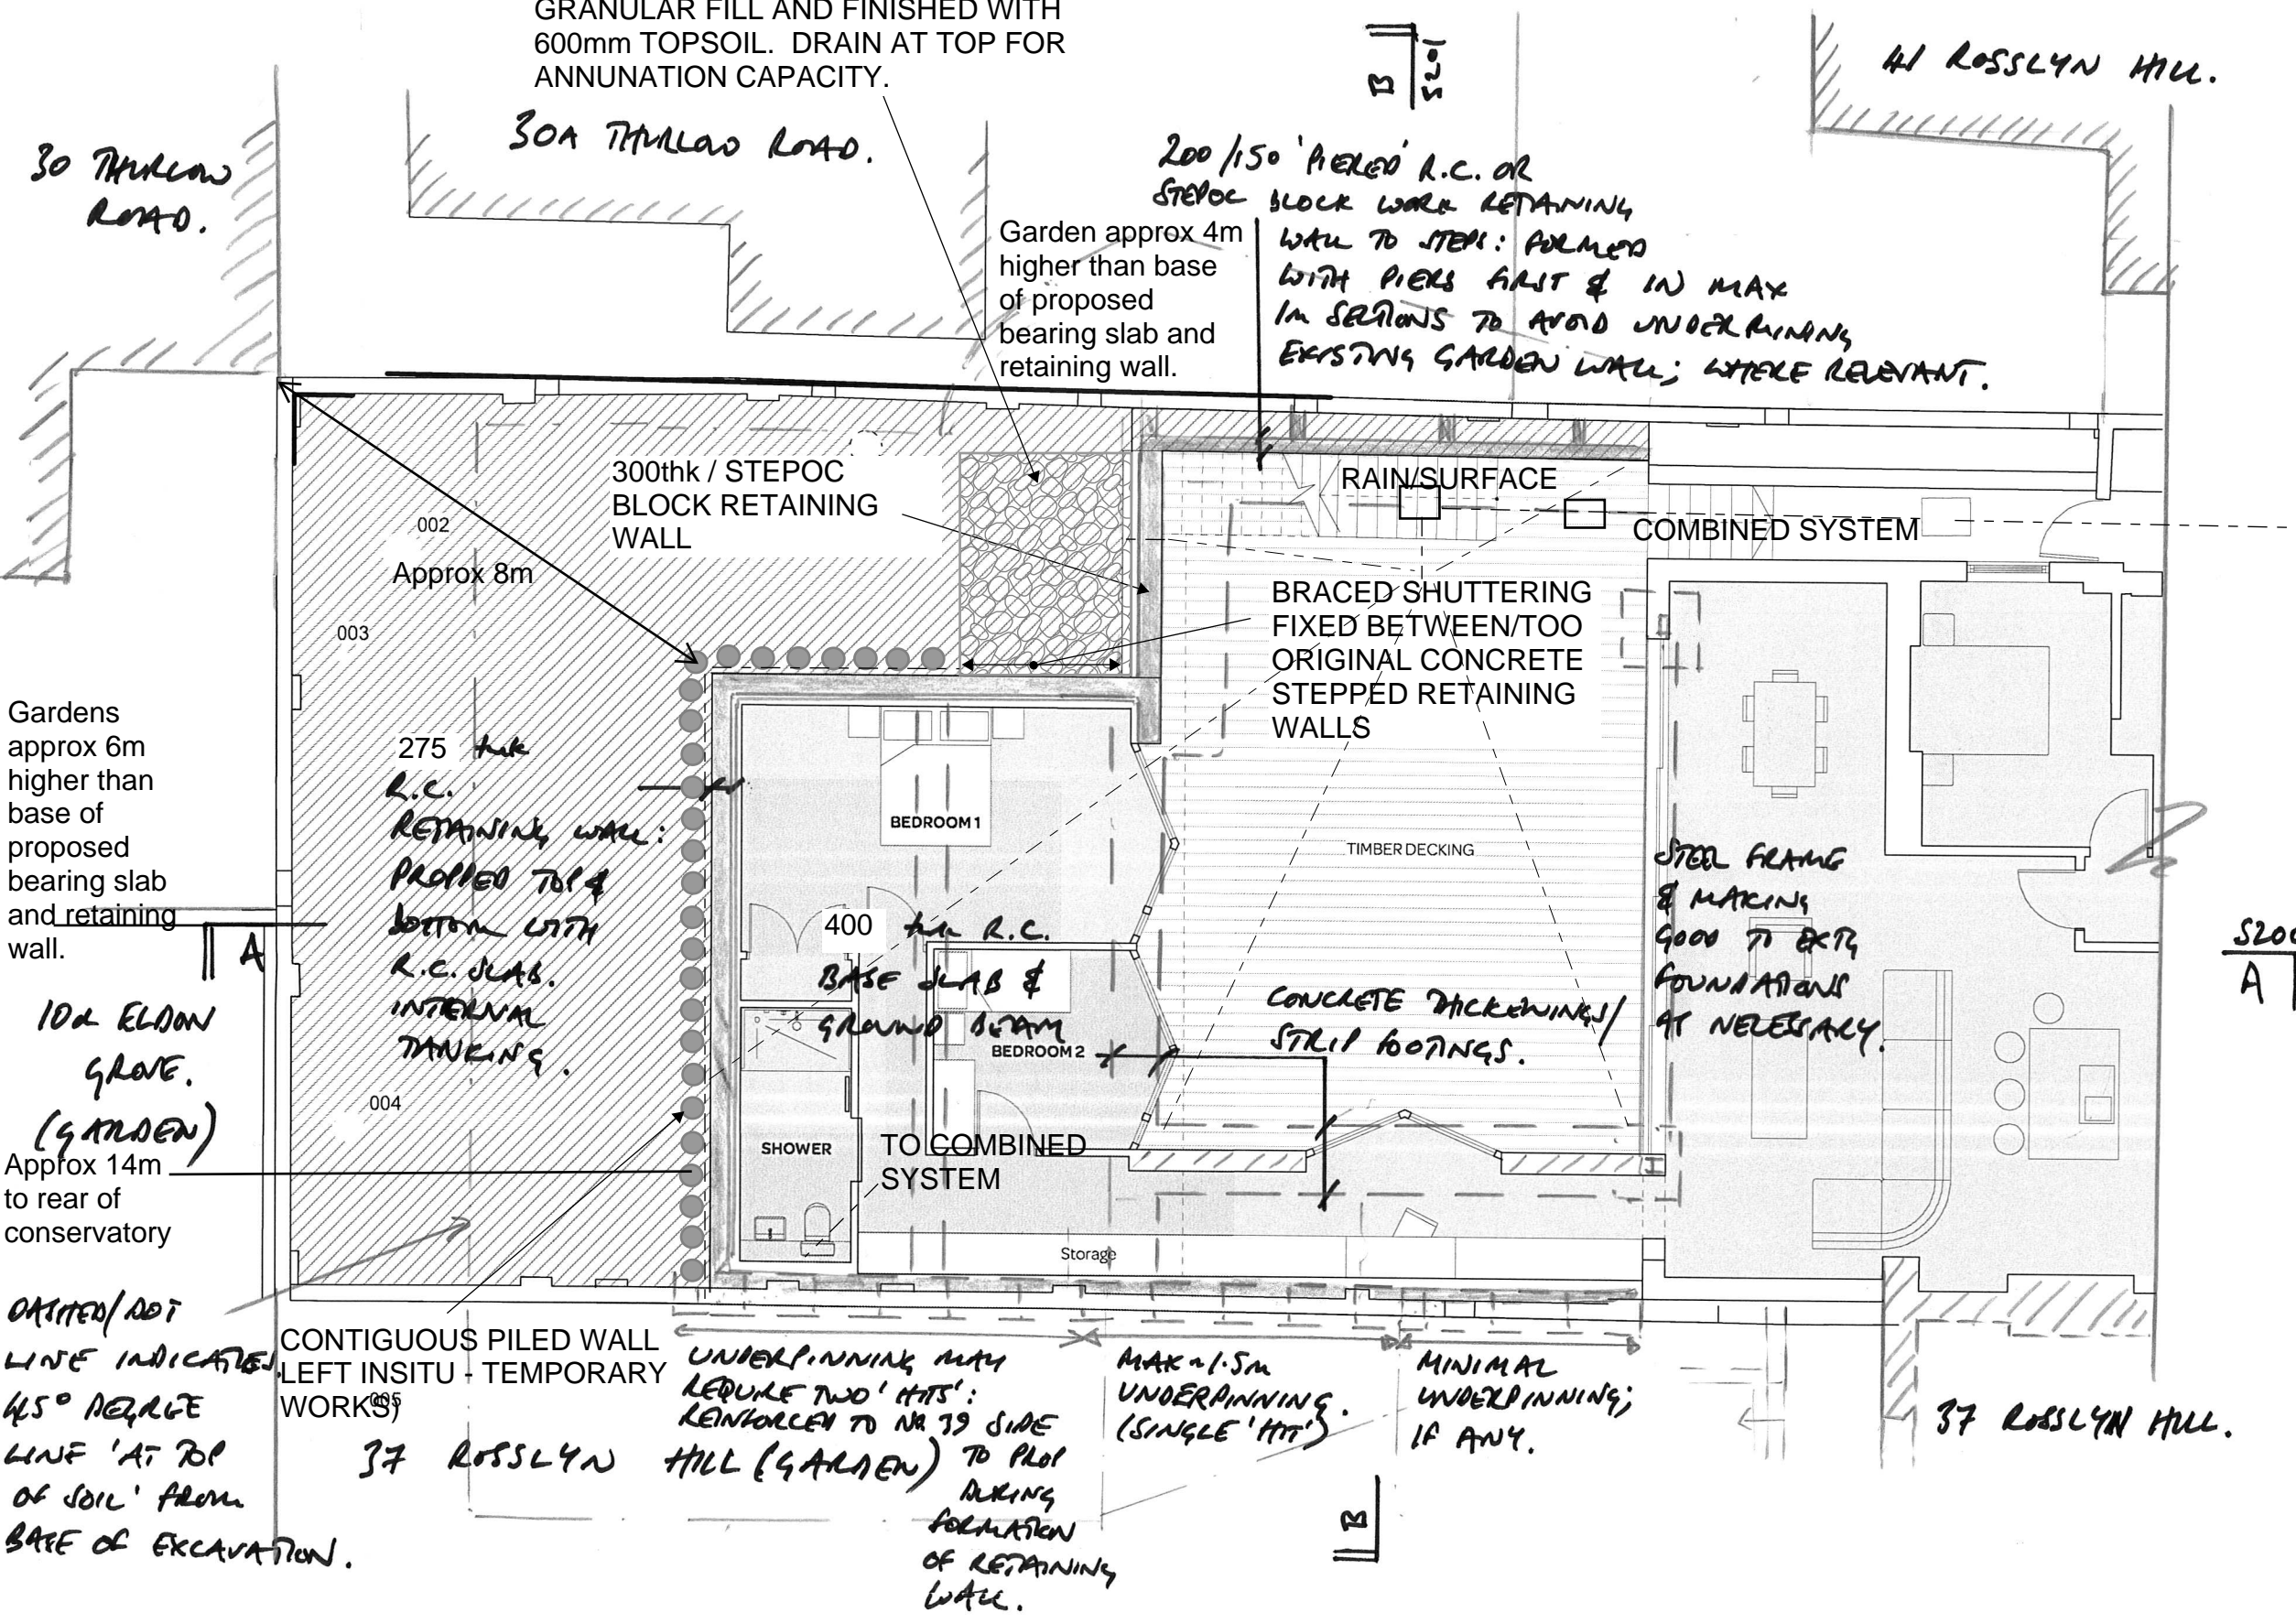 GRANULAR FILL AND FINISHED WITH
600mm TOPSOIL. DRAIN AT TOP FOR
ANNUNATION CAPACITY.
B
S201
41 ROSSLYN HILL.
30 THURLOW
ROAD.
30A THURLOW ROAD.
200/150 'PIERED' R.C. OR
STEPOC BLOCK WORK RETAINING
WALL TO STEPS: FORMED
WITH PIERS FIRST & IN MAX
1m SECTIONS TO AVOID UNDERMINING
EXISTING GARDEN WALL; WHERE RELEVANT.
Garden approx 4m
higher than base
of proposed
bearing slab and
retaining wall.
300thk / STEPOC
BLOCK RETAINING
WALL
RAIN/SURFACE
COMBINED SYSTEM
002
Approx 8m
003
BRACED SHUTTERING
FIXED BETWEEN/TOO
ORIGINAL CONCRETE
STEPPED RETAINING
WALLS
Gardens
approx 6m
higher than
base of
proposed
bearing slab
and retaining
wall.
275 thk
R.C.
RETAINING WALL:
PROPPED TOP &
BOTTOM WITH
R.C. SLAB.
INTERNAL
TANKING.
BEDROOM 1
TIMBER DECKING
STEEL FRAME
& MAKING
GOOD TO EXTG
FOUNDATIONS
AT NECESSARY.
400 thk R.C.
BASE SLAB &
GROUND BEAM
BEDROOM 2
CONCRETE THICKENINGS/
STRIP FOOTINGS.
A
A
ELDON
GROVE.
(GARDEN)
004
Approx 14m
to rear of
conservatory
SHOWER
TO COMBINED
SYSTEM
Storage
DASHED/DOT
LINE INDICATES
45° DEGREE
LINE 'AT TOP
OF SOIL' FROM
BASE OF EXCAVATION.
CONTIGUOUS PILED WALL
LEFT INSITU - TEMPORARY
WORKS)
005
UNDERPINNING MAY
REQUIRE TWO 'HITS':
REINFORCED TO NR 39 SIDE
TO PROP
DURING
FORMATION
OF RETAINING
WALL.
MAX ~1.5m
UNDERPINNING.
(SINGLE 'HIT')
MINIMAL
UNDERPINNING;
IF ANY.
37 ROSSLYN HILL (GARDEN)
37 ROSSLYN HILL.
B